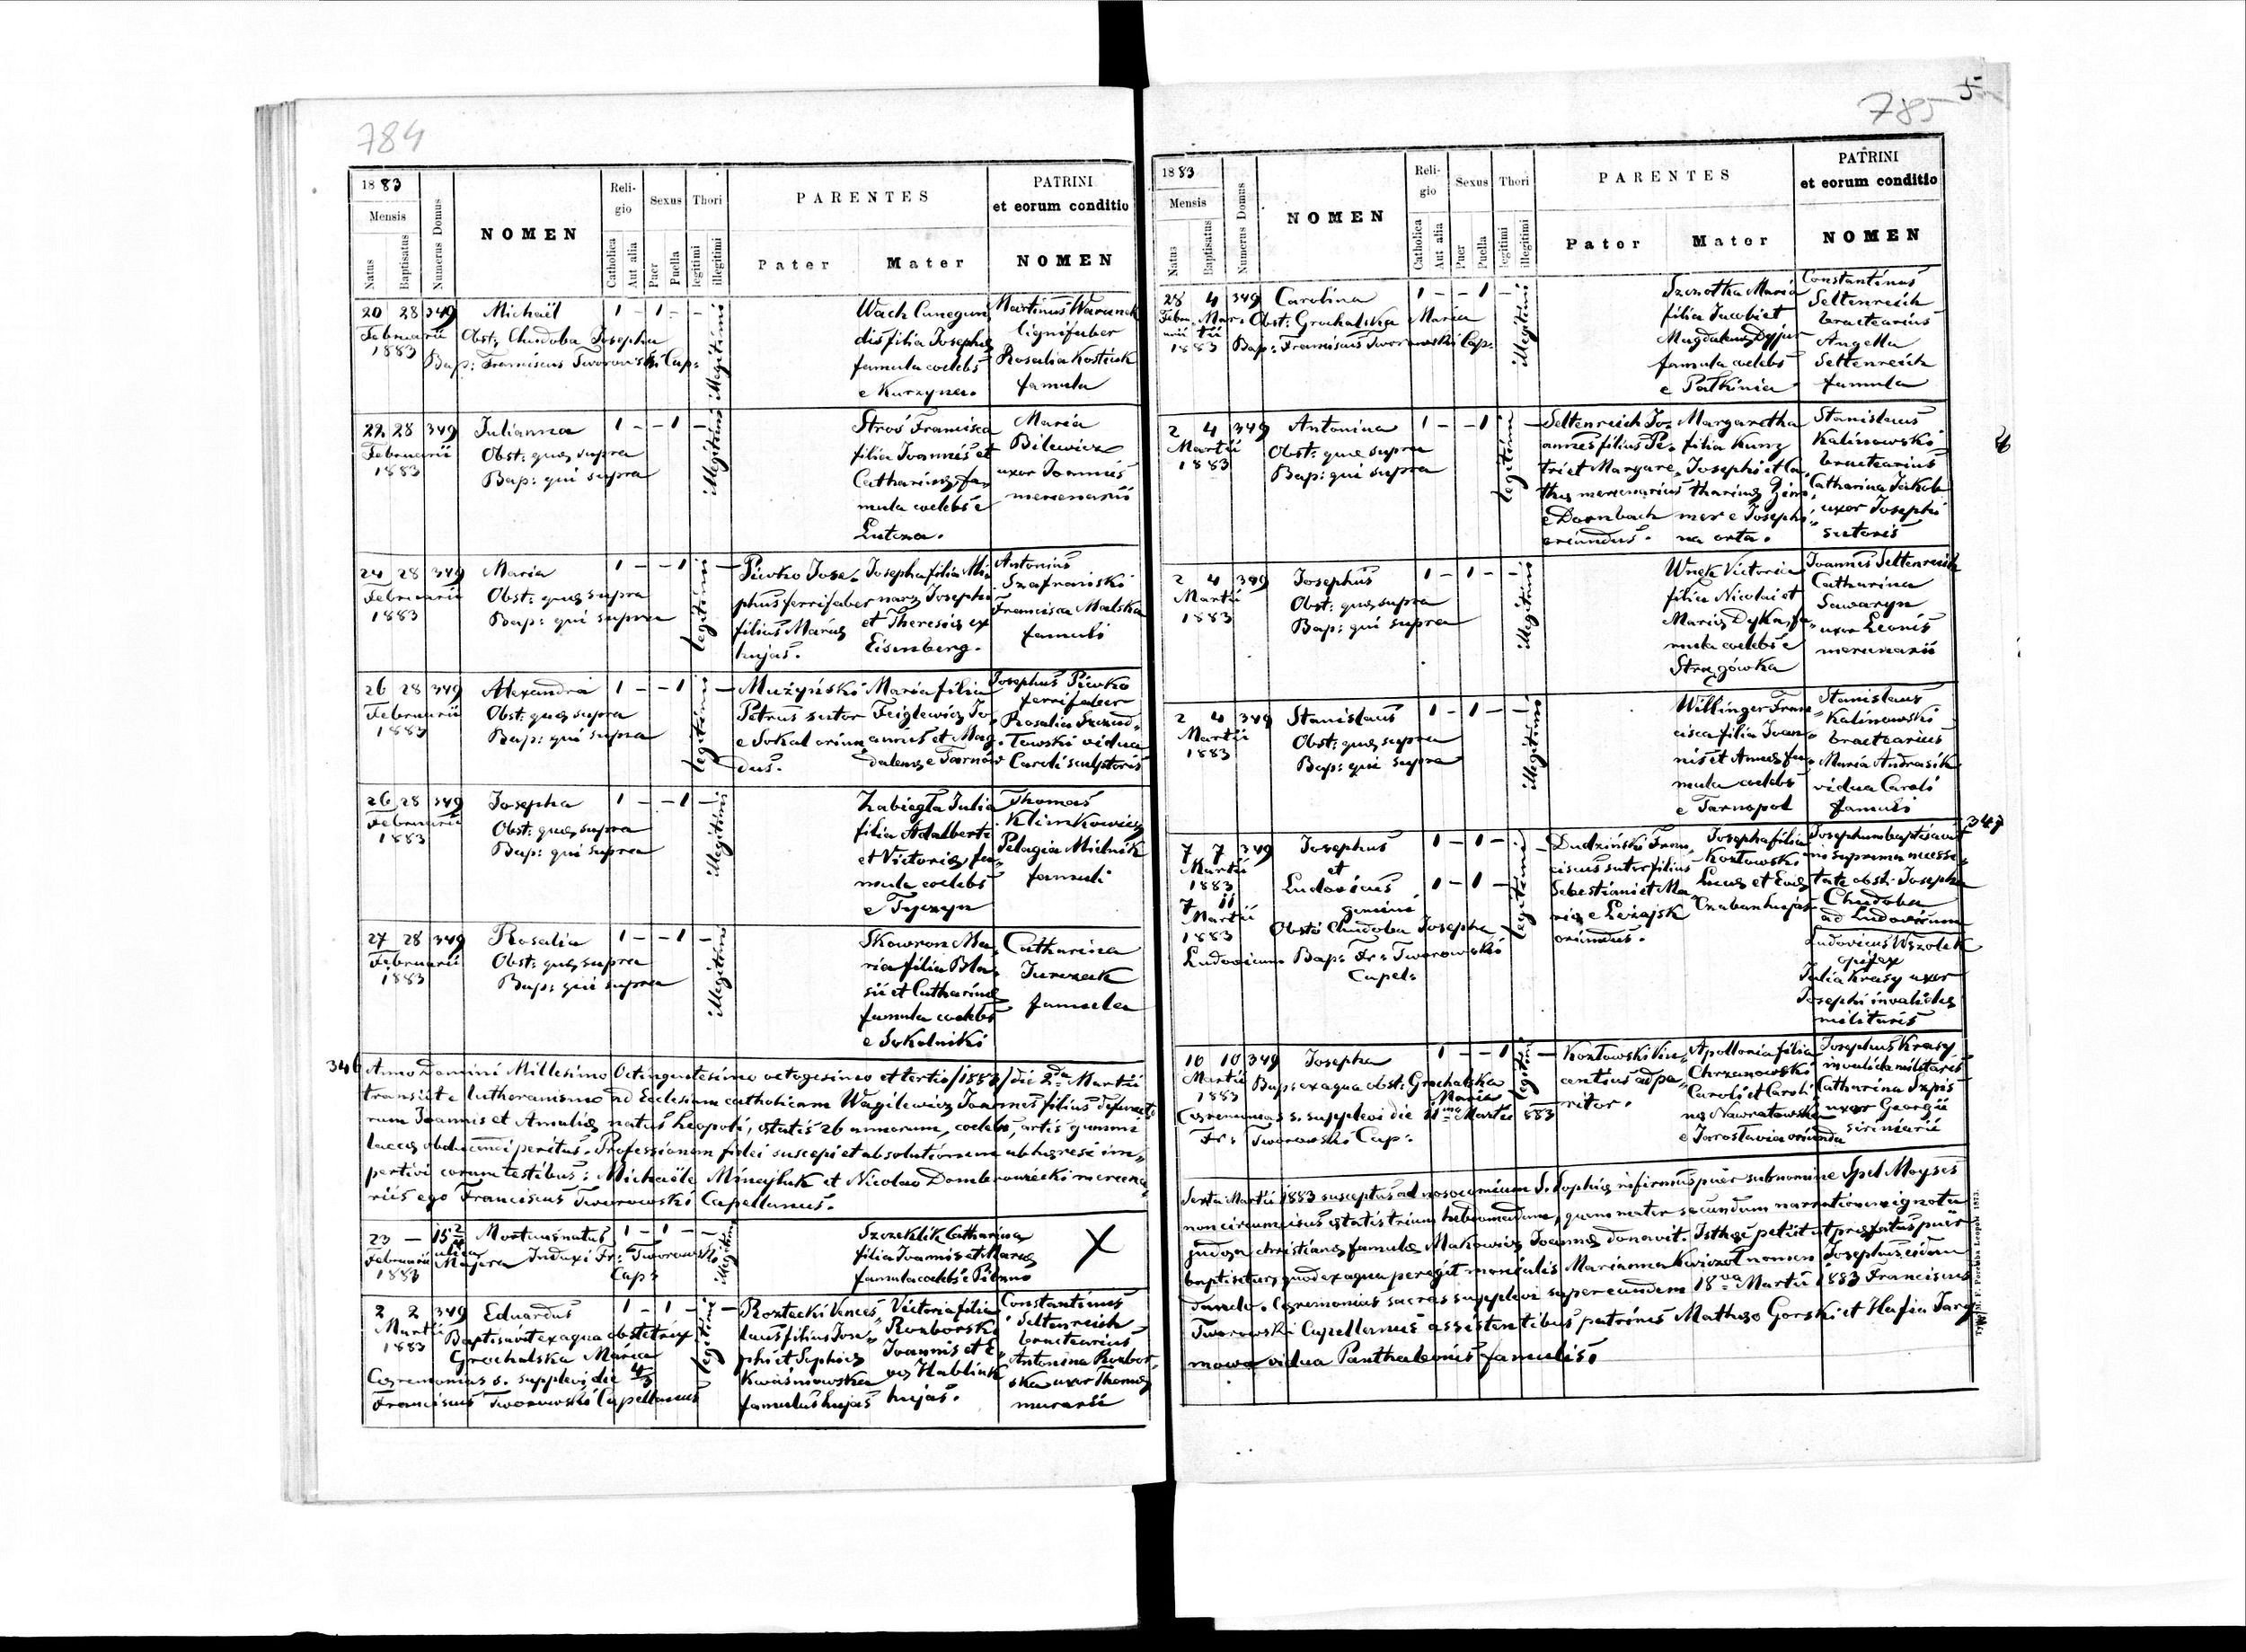 784
1883
Mensis
Natus
Baptisatus
Numerus Domus
NOMEN
Religio
Catholica
Aut alia
Sexus
Puer
Puella
Thori
legitimi
illegitimi
PARENTES
Pater
Mater
PATRINI
et eorum conditio
NOMEN
20 28 349 Michaël 1 - 1 - -
Februarii
1883
Obst: Chudoba Josepha
Bap: Franciscus Tworowski Cap:
illegitimi
Wach Cunegun
dis filia Josephi
famula coelebs
e Kurzyna.
Martinus Waranek
lignifaber
Rosalia Kostiuk
famula
22 28 349 Julianna 1 - - 1 -
Februarii
1883
Obst: quę supra
Bap: qui supra
illegitimi
Stroś Francisca
filia Joannis et
Catharinę fa„
mula coelebs e
Lutcza.
Maria
Bilewicz
uxor Joannis
mercenarii
24 28 349 Maria 1 - - 1 -
Februarii
1883
Obst: quę supra
Bap: qui supra
legitimi
Piwko Jose„
phus ferrifaber
filius Marię
hujas.
Josepha filia Mli
narz Josephi
et Theresię ex
Eisenberg.
Antonius
Szafrański
Francisca Malska
famuli
26 28 349 Alexandra 1 - - 1 -
Februarii
1883
Obst: quę supra
Bap: qui supra
legitimi
Mużyński
Petrus sutor
e Sokal oriun
dus.
Maria filia
Feiglewicz Jo„
annis et Mag„
dalenę e Tarnów
Josephus Piwko
ferrifaber
Rosalia
vidua
Caroli sculptoris
26 28 349 Josepha 1 - - 1 -
Februarii
1883
Obst: quę supra
Bap: qui supra
illegitimi
Zabiegła Julia
filia Adalberti
et Victorię fa„
mula coelebs
e Tyczyn
Thomas
Klimkowicz
Pelagia Mielnik
famuli
27 28 349 Rosalia 1 - - 1 -
Februarii
1883
Obst: quę supra
Bap: qui supra
illegitimi
Skowron Ma„
ria filia Bla„
sii et Catharinę
famula coelebs
e Sokolniki
Catharina
Jurczak
famula
346 Anno Domini Millesimo Octingentesimo octogesimo et tertio /1883/ die 2da Martii
transiit e lutheranismo ad Ecclesiam catholicam Wagilewicz Joannes filius defuncto
rum Joannis et Amalię natus Leopoli, ętatis 26 annorum, coelebs, artis gummi
laccę obducendi peritus. Professionem fidei suscepi et absolutionem ab hęresi im„
pertivi coram testibus: Michaële Minajluk et Nicolao Dombrowiecki mercena„
riis ego Franciscus Tworowski Capellanus.
23 - 15 2/4 Mortuus natus 1 - 1 - -
Februarii
1883
ulica
Majera Induxi Fr: Tworowski
Cap:
illegitimi
Szczeklik Catharina
filia Joannis et Marię
famula coelebs e Pilzno
X
2 2 349 Eduardus 1 - 1 - -
Martii
1883
Baptisavit ex aqua obstetrix
Grochalska Maria
Cęremonias s. supplevi die 4/3
Franciscus Tworowski Capellanus
legitimi
Roztecki Vences„
laus filius Jose„
phi et Sophię
Kwaśniowska
famulus hujas
Victoria filia
Rozborski
Joannis et E„
vę Hablink
hujas.
Constantinus
Seltenreich
bractearius
Antonina Rozbor„
ska uxor Thomę
murarii
785 5
1883
Mensis
Natus
Baptisatus
Numerus Domus
NOMEN
Religio
Catholica
Aut alia
Sexus
Puer
Puella
Thori
legitimi
illegitimi
PARENTES
Pater
Mater
PATRINI
et eorum conditio
NOMEN
28 4 349 Carolina 1 - - 1 -
Febru„ Mar„
arii tii
1883
Obst: Grochalska Maria
Bap: Franciscus Tworowski Cap:
illegitimi
Szenotka Maria
filia Jacobi et
Magdalenę
famula coelebs
e Pałkinia
Constantinus
Seltenreich
bractearius
Angella
Seltenreich
famula
2 4 349 Antonina 1 - - 1 -
Martii
1883
Obst: quę supra
Bap: qui supra
legitimi
Seltenreich Jo„
annes filius Pe„
tri et Margare„
thę mercenarius
e Dornbach
oriundus.
Margaretha
filia Kunz
Josephi et Ca„
tharinę Zim„
mer e Josephi„
na orta.
Stanislaus
Kalinowski
bractearius
Catharina Jakob
uxor Josephi
sutoris
2 4 349 Josephus 1 - 1 - -
Martii
1883
Obst: quę supra
Bap: qui supra
illegitimi
Wnęk Victoria
filia Nicolai et
Marię Dyka, fa„
mula coelebs e
Strzgówka
Joannes Seltenreich
Catharina
Sawaryn
uxor Leonis
mercenarii
2 4 349 Stanislaus 1 - 1 - -
Martii
1883
Obst: quę supra
Bap: qui supra
illegitimi
Willinger Fran„
cisca filia Joan„
nis et Annę fa„
mula coelebs
e Tarnopol
Stanislaus
Kalinowski
bractearius
Maria Andrasik
vidua Caroli
famuli
347
7 7 349 Josephus 1 - 1 -
Martii
1883
et
Ludovicus 1 - 1 -
7 11
Martii
1883
gemini
Obst: Chudoba Josepha
Ludovicum Bap: Fr: Tworowski
Capel:
legitimi
Dudziński Fran„
ciscus sutor filius
Sebastiani et Ma
rię e Leżajsk
oriundus.
Josepha filia
Kozłowski
Lucę et Evę
Czaban hujas
Josephum baptisavit
in suprema necessi„
tate obst: Josepha
Chudoba
ad Ludovicum
Ludovicus Wszołek
opifex
Julia Krasy uxor
Josephi invalidę
militaris
10 10 349 Josepha 1 - - 1 -
Martii
1883
Bap: ex aqua obst: Grochalska
Maria
Cęremonias s. supplevi die 11ma Martii 883
Fr: Tworowski Cap:
legitimi
Kozłowski Vin„
centius adpa„
ritor.
Apollonia filia
Chrzanowski
Caroli et Caroli
nę Nawratowska
e Jarosłavia oriunda
Josephus Krasy
invalida militaris
Catharina Szpis
uxor Georgii
siriniarii
Sexta Martii 1883 susceptus ad nosocomium S. Sophię infirmus puer sub nomine Spet Moyses
non circumcisus ętatis trium hebdomadum, quem mater secundum narrationem ignota
judęa christianę famulę Makowicz Joannę donavit. Isthęc petiit ut pręfatus puer
baptisetur, quod ex aqua peregit monialis Marianna Kwiczoł nomen Josephus eidem
dando. Cęremonias sacras supplevi super eundem 18va Martii 1883 Franciscus
Tworowski Capellanus assistentibus patrinis Mathęo Gorski et Hafia Targ
mowa vidua Panthaleonis famulis.